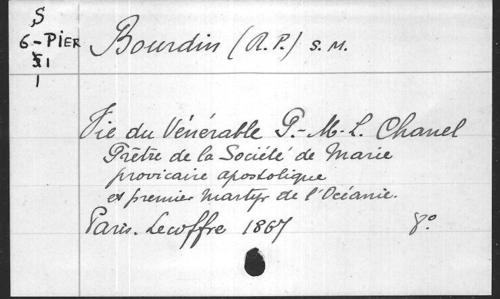 S
6-PIER
51
1
Bourdin (R.P.) S.M.
Vie du Vénérable P.-M.-L. Chanel
Prêtre de la Société de Marie
provicaire apostolique
et premier martyr de l'Océanie.
Paris. Lecoffre 1867 8°